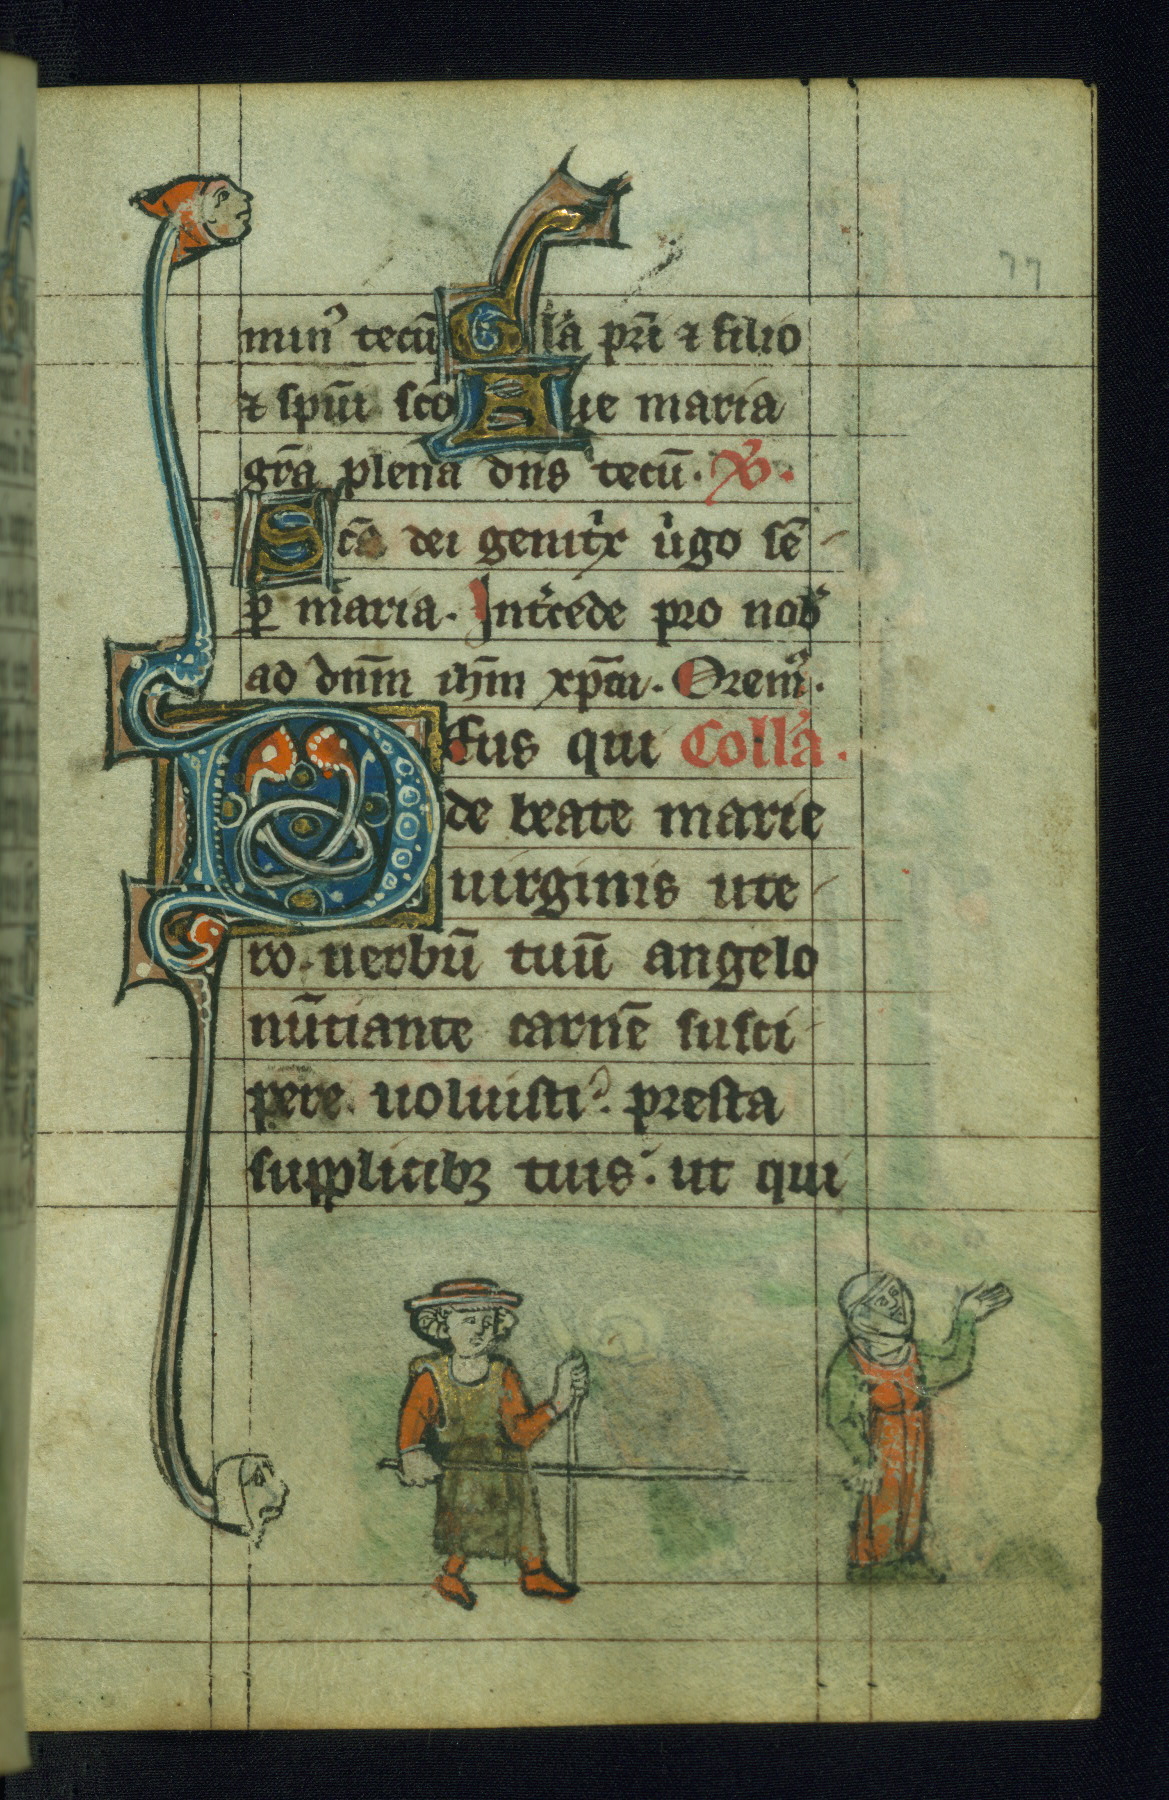 77
min⁹ tecū Gła pr̄i ⁊ filio
⁊ spūi sc̄o Aue maria
gr̄a plena dn̄s tecū. 
Sc̄a dei genitͥx uͥgo sē-
ꝑ maria. Int̾cede pro nob̾
ad dn̄m ih̄m xp̄m. Orem⁹.
Deus qui Coll̄a.
de beate marie
uirginis ute-
ro uerbū tuū angelo
nūtiante carnē susci-
pere uoluisti. presta
supplicibꝫ tuis. ut qui